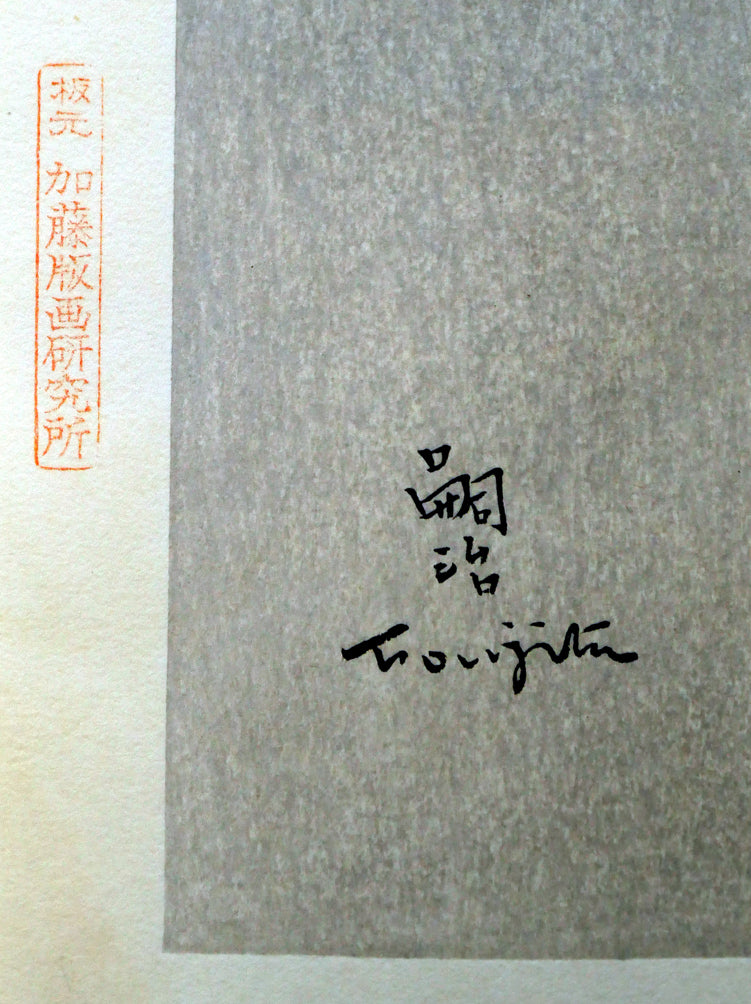 板元 加藤版画研究所
嗣治
Foujita